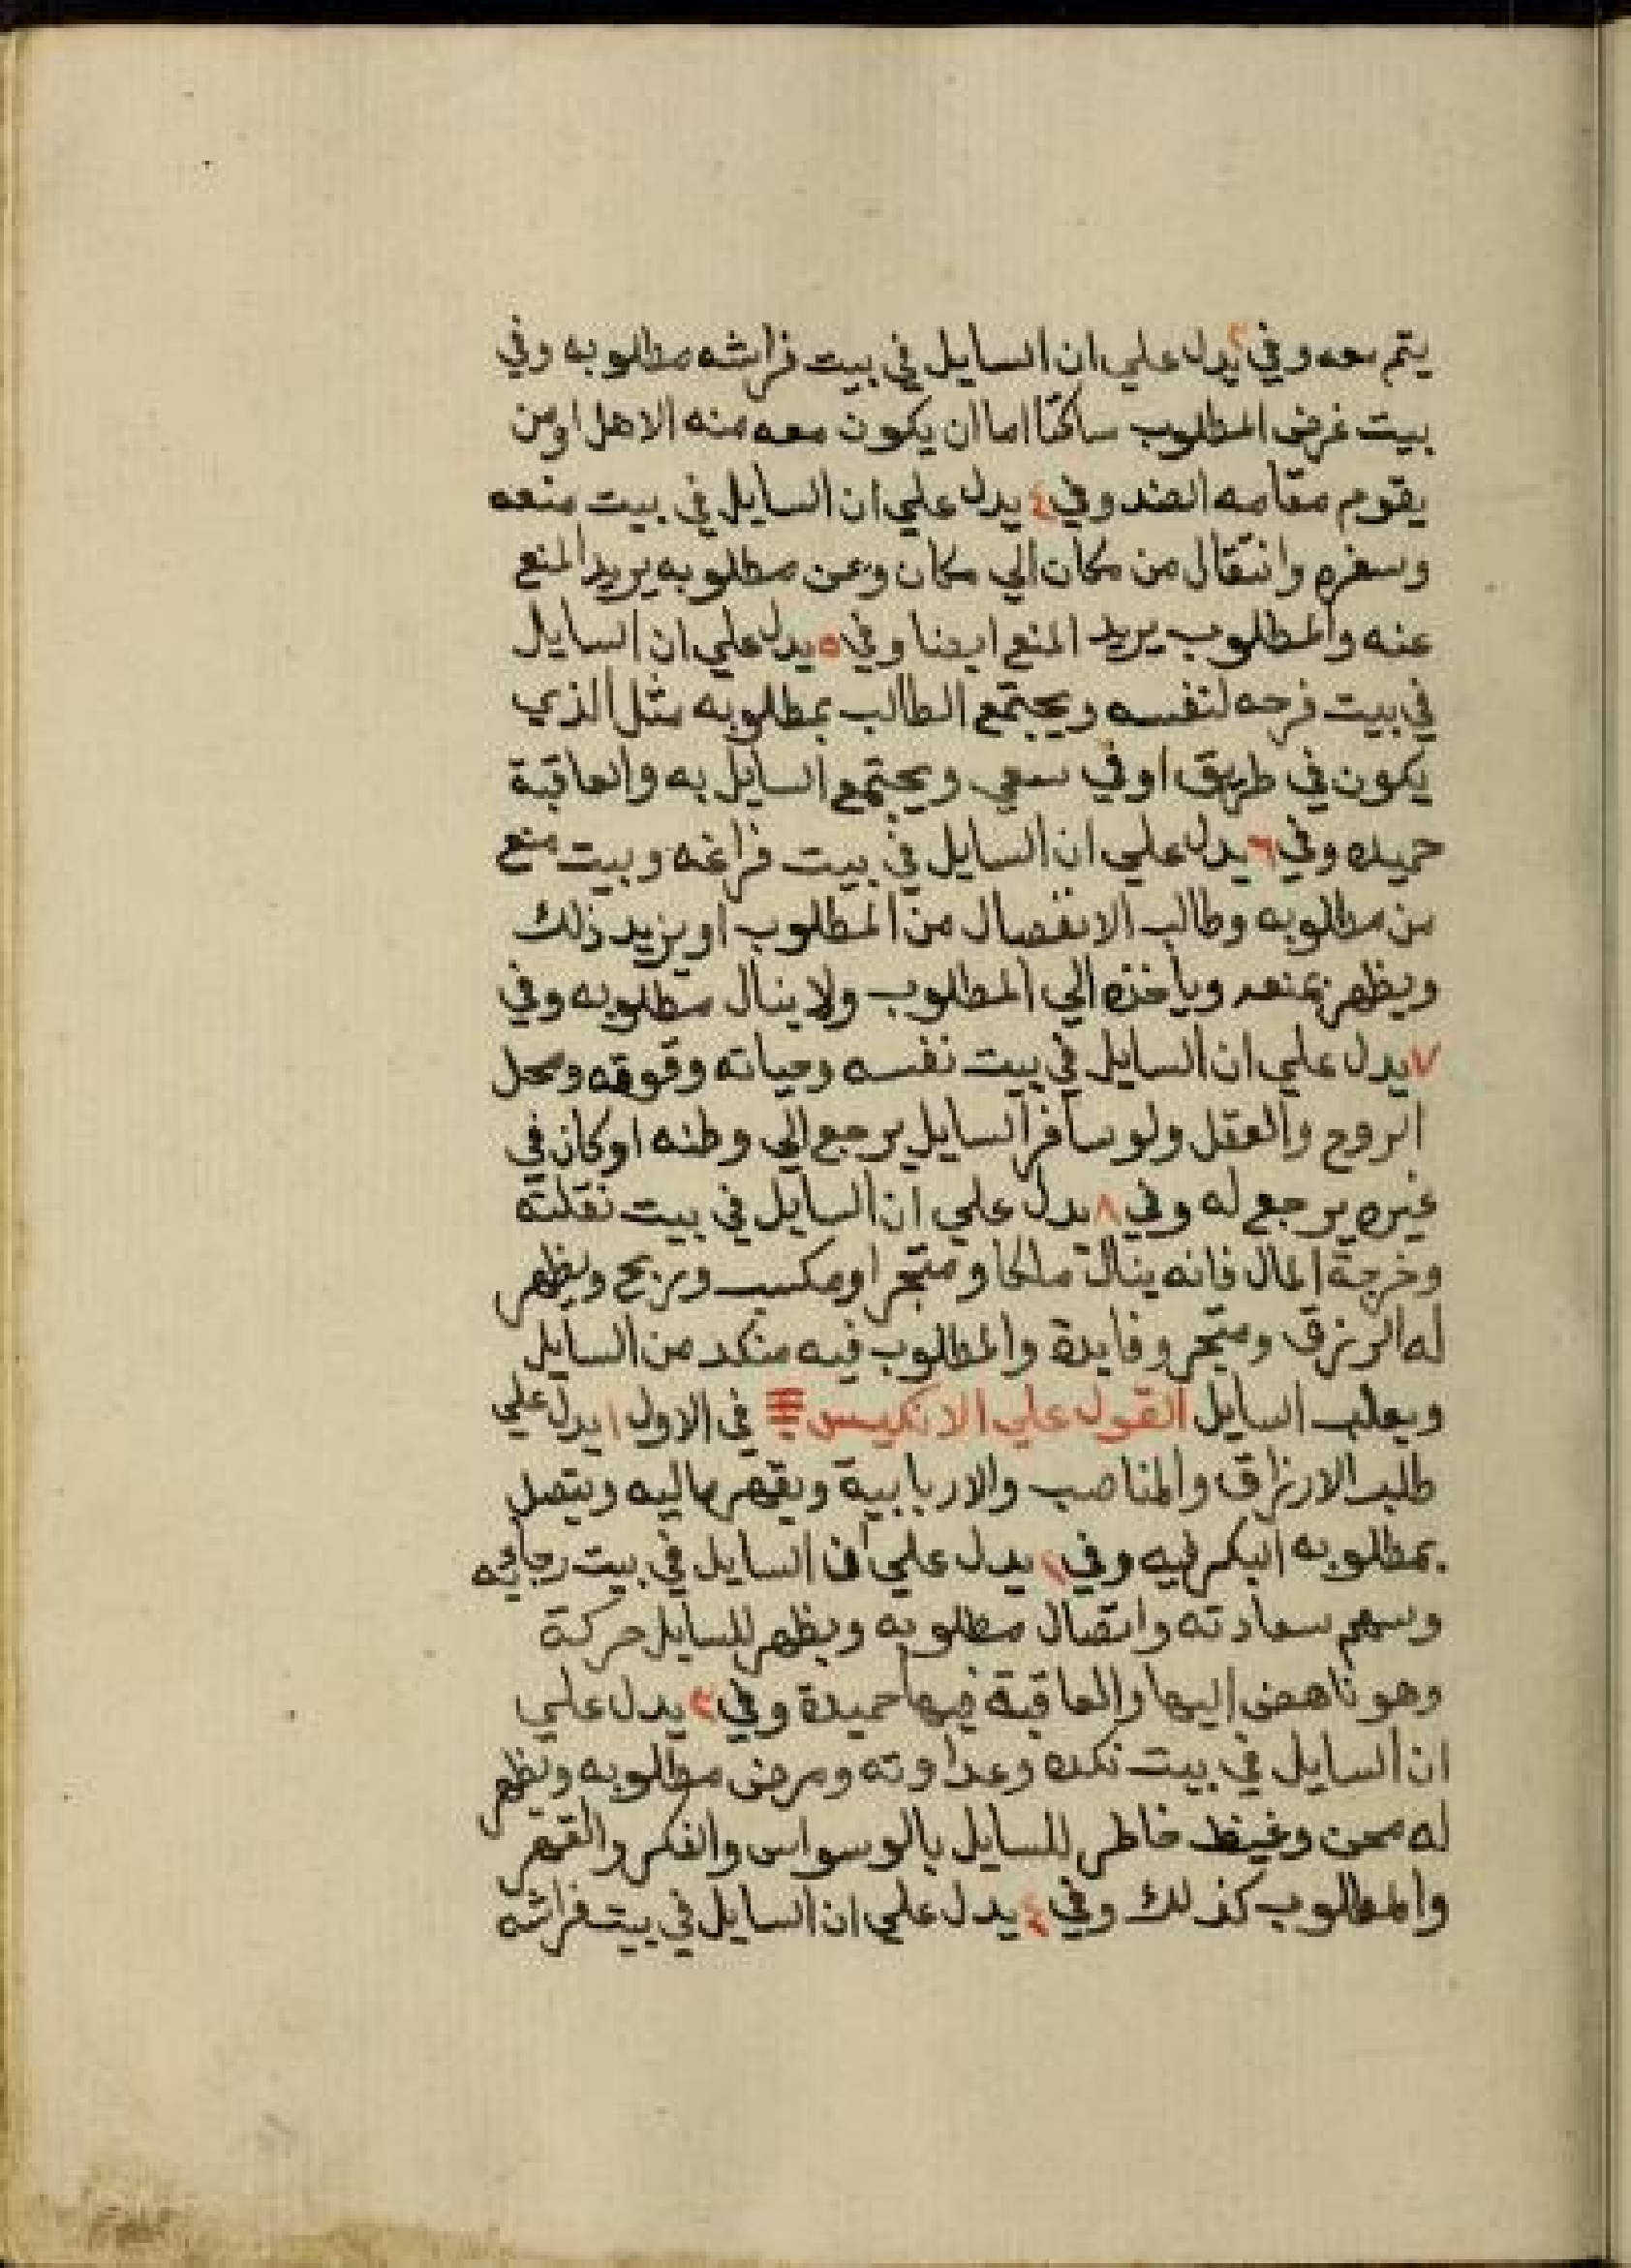 يتم معه وفي ٣ يدل علي ان السايل في بيت فراشه مطلوبه وفي
بيت غرض المطلوب ساكتا اما ان يكون معه منه الاهل او من
يقوم مقامه الضد وفي ٤ يدل علي ان السايل في بيت منعه
وسفره وانتقال من مكان الي مكان وعن مطلوبه يريد المنع
عنه والمطلوب يريد المنع ايضا وفي ٥ يدل علي ان السايل
في بيت فرحه لنفسه ويجتمع الطالب بمطلوبه مثل الذي
يكون في طريق او في سعي ويجتمع السايل به والعاقبة
حميده وفي ٦ يدل علي ان السايل في بيت فراغه وبيت منع
من مطلوبه وطالب الانفصال من المطلوب او يزيد ذلك
ويظهر بمنعه وياخذه الي المطلوب ولا ينال مطلوبه وفي
٧ يدل علي ان السايل في بيت نفسه وحياته وقوته ومحل
الروح والعقل ولو سافر السايل يرجع الي وطنه او كان في
غيره يرجع له وفي ٨ يدل علي ان السايل في بيت نقلته
وخرجة المال فانه ينال ملكا ومتجر او مكسب وربح ويظهر
له الرزق ومتجر وفايدة والمطلوب فيه منكد من السايل
السايل القول علي الانكيس في الاول ١ يدل علي
طلب الارزاق والمناصب والاربابية ويقهر ويتصل
بمطلوبه البكر وفي ٢ يدل علي ان السايل في بيت
وسهم سعادته واتصال مطلوبه ويظهر للسايل حركة
وهو ناهض اليها والعاقبة فيها حميدة وفي ٣ يدل علي
ان السايل في بيت نكده وعداوته ومرض مطلوبه ويظهر
له محن وغيظ خاطر للسايل بالوسواس والفكر والقهر
والمطلوب كذلك وفي ٤ يدل علي ان السايل في بيت فراشه